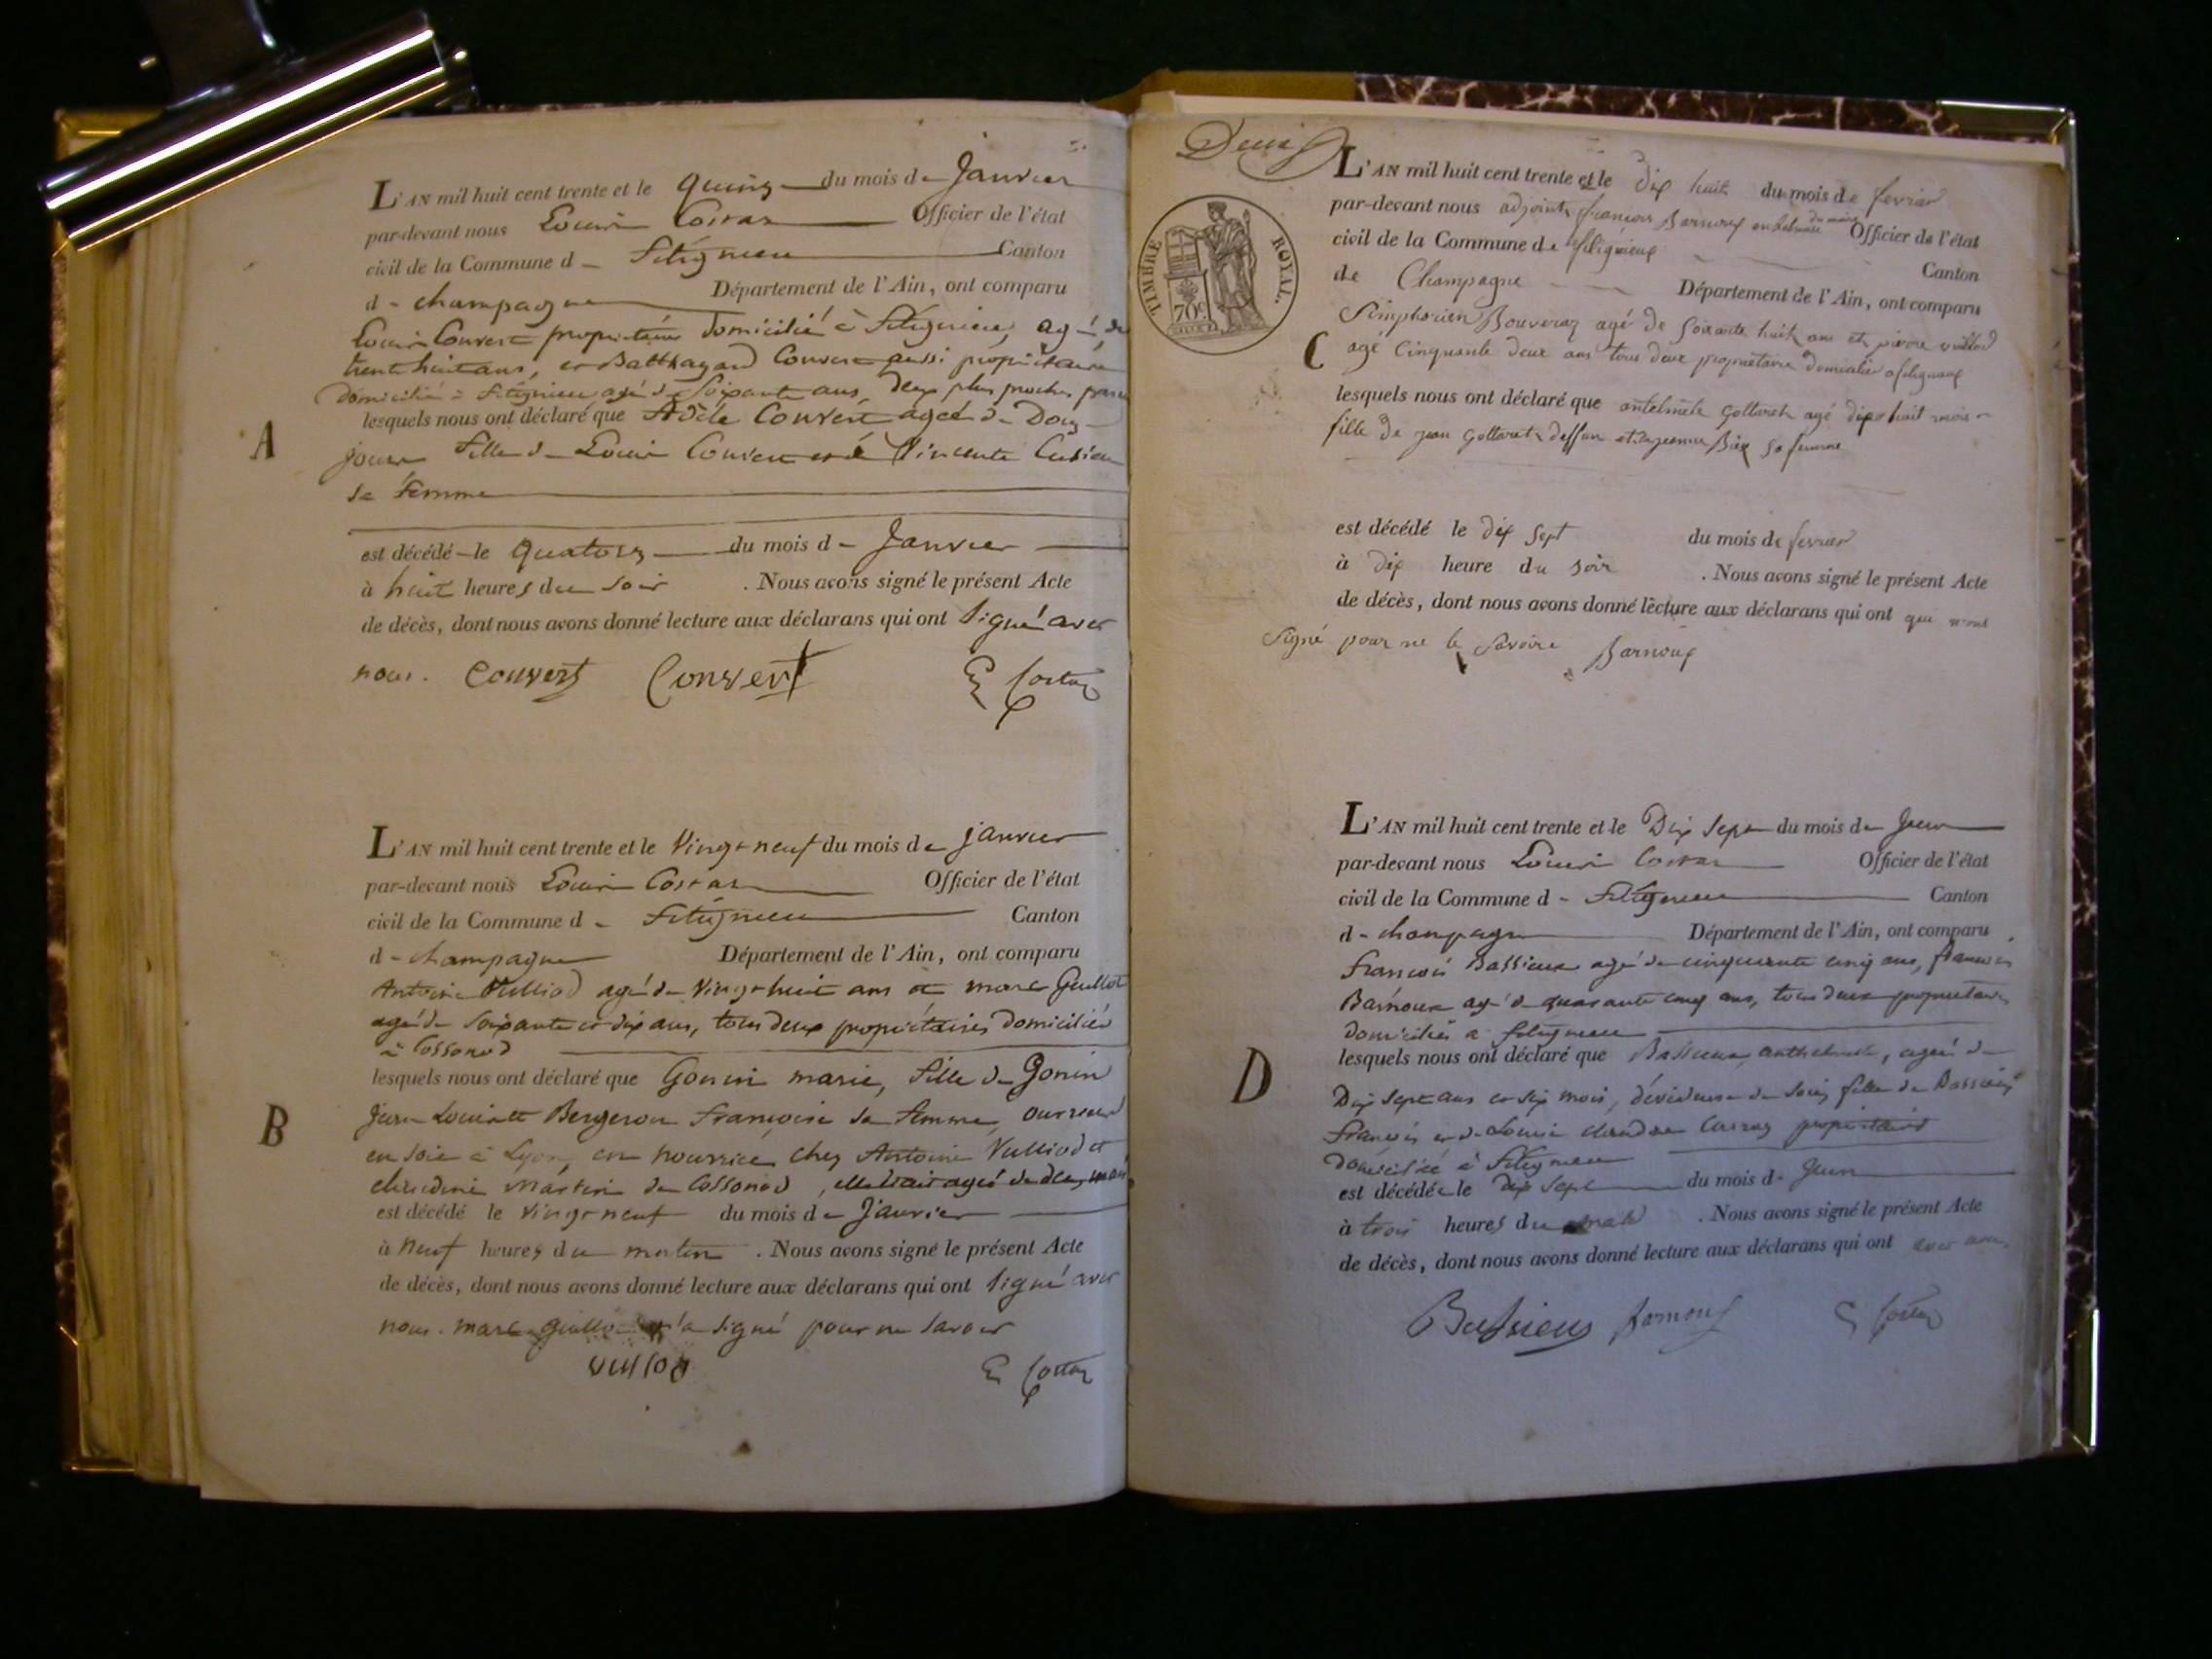 L'AN mil huit cent trente et le quinze du mois de Janvier
par-devant nous Louis Costaz Officier de l'état
civil de la Commune d Flégnieu Canton
d champagne Département de l'Ain, ont comparu
Louis Convert propriétaire domicilié à agé de
trente huit ans, et Balthazard Convert aussi propriétaire
domicilié à agé de soixante ans, deux plus proches
lesquels nous ont déclaré que Adèle Convert agée de Douze
jours fille de Louis Convert et de Vincente
sa femme
est décédé le quatorze du mois de Janvier
à huit heures du soir . Nous avons signé le présent Acte
de décès, dont nous avons donné lecture aux déclarans qui ont signé avec
nous. Convert Convert Costaz
A
L'AN mil huit cent trente et le vingt neuf du mois de janvier
par-devant nous Louis Costaz Officier de l'état
civil de la Commune d Canton
d champagne Département de l'Ain, ont comparu
Antoine Vulliod agé de vingt huit ans et marc Guillot
agé de soixante et dix ans, tous deux propriétaires domiciliés
à Cossonod
lesquels nous ont déclaré que Gonin marie, fille de Gonin
Jean Louis et Bergeron Françoise sa femme, ouvriers
en soie à Lyon, en nourrice chez Antoine Vulliod et
claudine Martin de Cossonod, elle était agée de deux mois
est décédé le vingt neuf du mois de Janvier
à neuf heures du matin . Nous avons signé le présent Acte
de décès, dont nous avons donné lecture aux déclarans qui ont signé avec
nous. marc n'a signé pour ne savoir
vulliod Costaz
B
TIMBRE ROYAL.
70c
L'AN mil huit cent trente et le dix huit du mois de fevrier
par-devant nous adjoint françois Barnoux Officier de l'état
civil de la Commune de Canton
de Champagne Département de l'Ain, ont comparu
Simphorien Bouveraz agé de soixante huit ans et pierre vulliod
C
agé cinquante deux ans tous deux propriétaire domicilié
lesquels nous ont déclaré que antelmete gottaret agé dix huit mois
fille de jean gottaret deffun et Bix sa femme
est décédé le dix sept du mois de fevrier
à dix heure du soir . Nous avons signé le présent Acte
de décès, dont nous avons donné lecture aux déclarans qui ont qui n'ont
signé pour ne le savoire Barnoux
L'AN mil huit cent trente et le Dix sept du mois de Juin
par-devant nous Louis Costaz Officier de l'état
civil de la Commune d Canton
d champagne Département de l'Ain, ont comparu
François Bassieux agé de cinquante cinq ans, françois
Barnoux agé de quarante cinq ans, tous deux propriétaires
domiciliés a
lesquels nous ont déclaré que Bassieux anthelmette, agée de
D
Dix sept ans et six mois, dévideuse de soie, fille de Bassieux
François et de Louise claudine propriétaires
domicilié à
est décédée le dix sept du mois de Juin
à trois heures du . Nous avons signé le présent Acte
de décès, dont nous avons donné lecture aux déclarans qui ont avec nous.
Bassieux Barnoux Costaz